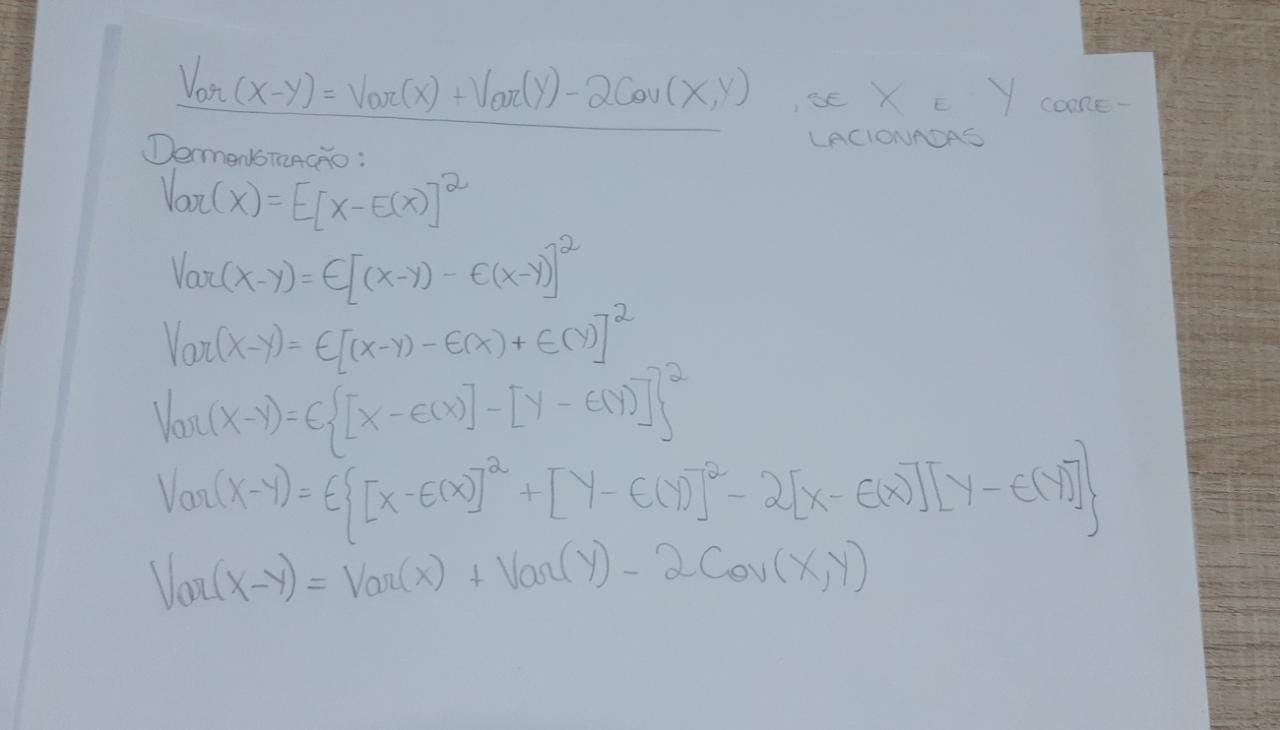 Var(X-Y) = Var(X) + Var(Y) - 2Cov(X,Y) , SE X E Y CORRE-
LACIONADAS
DEMONSTRAÇÃO:
Var(X) = E[X-E(X)]²
Var(X-Y) = E[(X-Y) - E(X-Y)]²
Var(X-Y) = E[(X-Y) - E(X) + E(Y)]²
Var(X-Y) = E{[X-E(X)] - [Y-E(Y)]}²
Var(X-Y) = E{[X-E(X)]² + [Y-E(Y)]² - 2[X-E(X)][Y-E(Y)]}
Var(X-Y) = Var(X) + Var(Y) - 2Cov(X,Y)